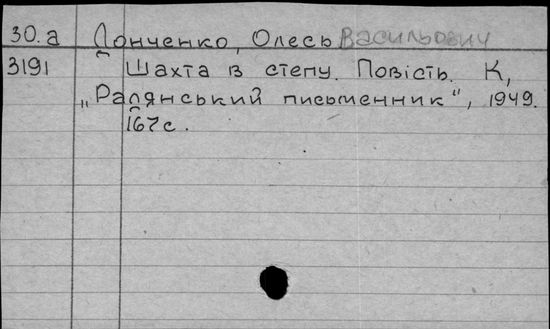 30.а Донченко, Олесь Васильович
3191 Шахта в степу. Повість. К,
„Радянський письменник", 1949.
167с.